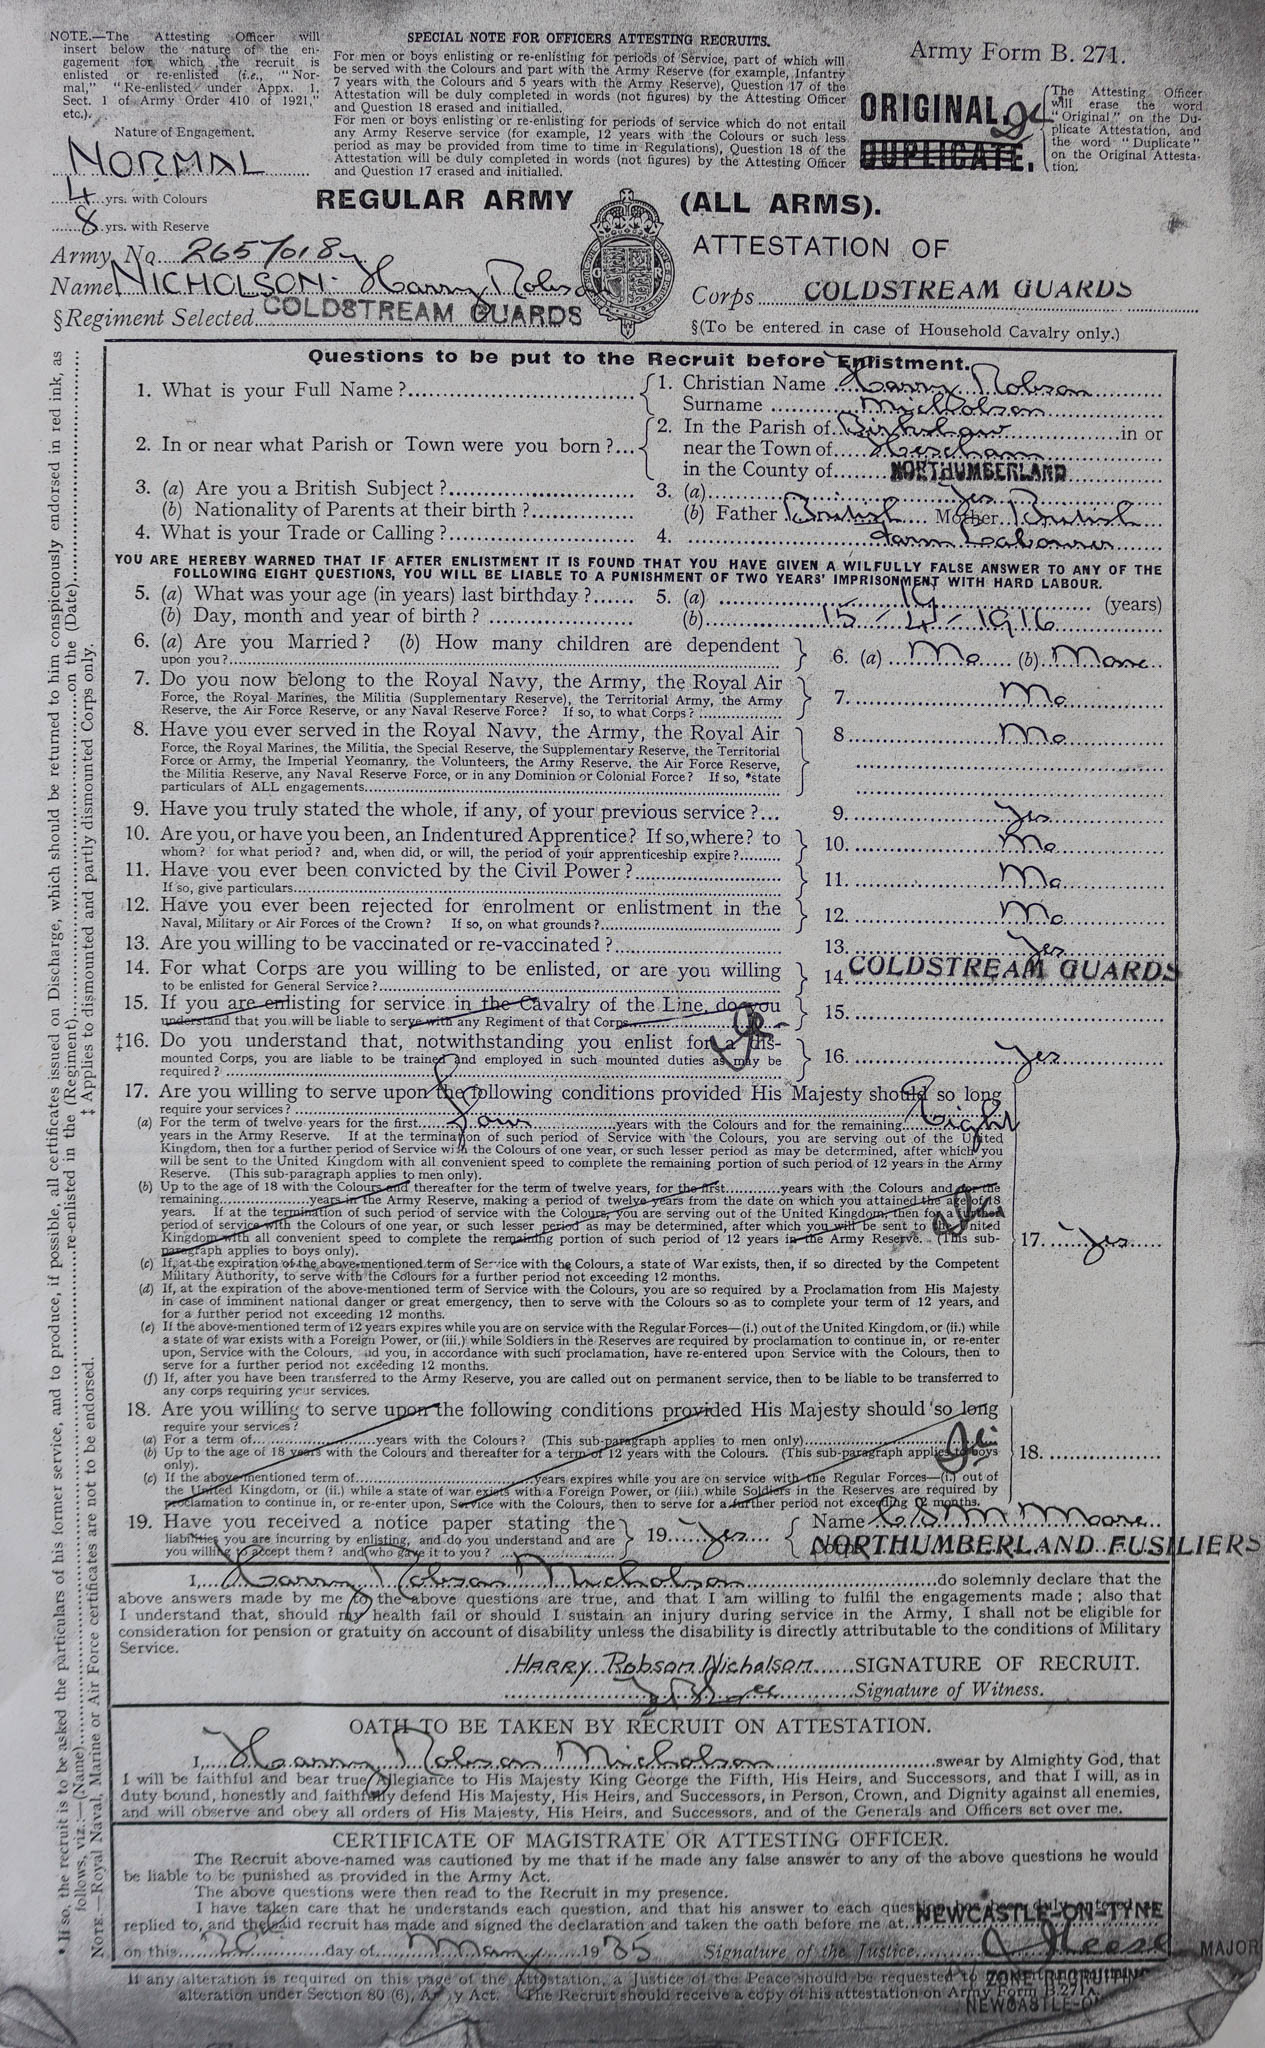 NOTE.—The Attesting Officer will
insert below the nature of the en-
gagement for which the recruit is
enlisted or re-enlisted (i.e., "Nor-
mal," "Re-enlisted under Appx. 1,
Sect. 1 of Army Order 410 of 1921,"
etc.).
Nature of Engagement.
NORMAL
4 yrs. with Colours
8 yrs. with Reserve
SPECIAL NOTE FOR OFFICERS ATTESTING RECRUITS.
For men or boys enlisting or re-enlisting for periods of Service, part of which will
be served with the Colours and part with the Army Reserve (for example, Infantry
7 years with the Colours and 5 years with the Army Reserve), Question 17 of the
Attestation will be duly completed in words (not figures) by the Attesting Officer
and Question 18 erased and initialled.
For men or boys enlisting or re-enlisting for periods of service which do not entail
any Army Reserve service (for example, 12 years with the Colours or such less
period as may be provided from time to time in Regulations), Question 18 of the
Attestation will be duly completed in words (not figures) by the Attesting Officer
and Question 17 erased and initialled.
Army Form B. 271.
ORIGINAL.
DUPLICATE.
The Attesting Officer
will erase the word
"Original" on the Du-
plicate Attestation, and
the word "Duplicate"
on the Original Attesta-
tion.
REGULAR ARMY (ALL ARMS).
ATTESTATION OF
Army No 2657018
Name NICHOLSON Harry Robson
§Regiment Selected COLDSTREAM GUARDS
Corps COLDSTREAM GUARDS
§(To be entered in case of Household Cavalry only.)
Questions to be put to the Recruit before Enlistment.
1. What is your Full Name? 1. Christian Name Harry Robson
Surname Nicholson
2. In or near what Parish or Town were you born? 2. In the Parish of in or
near the Town of Hexham
in the County of NORTHUMBERLAND
3. (a) Are you a British Subject? 3. (a) Yes
(b) Nationality of Parents at their birth? (b) Father British Mother British
4. What is your Trade or Calling? 4. Farm Labourer
YOU ARE HEREBY WARNED THAT IF AFTER ENLISTMENT IT IS FOUND THAT YOU HAVE GIVEN A WILFULLY FALSE ANSWER TO ANY OF THE
FOLLOWING EIGHT QUESTIONS, YOU WILL BE LIABLE TO A PUNISHMENT OF TWO YEARS' IMPRISONMENT WITH HARD LABOUR.
5. (a) What was your age (in years) last birthday? 5. (a) 19 (years)
(b) Day, month and year of birth? (b) 15-4-1916
6. (a) Are you Married? (b) How many children are dependent
upon you? 6. (a) No (b) None
7. Do you now belong to the Royal Navy, the Army, the Royal Air
Force, the Royal Marines, the Militia (Supplementary Reserve), the Territorial Army, the Army
Reserve, the Air Force Reserve, or any Naval Reserve Force? If so, to what Corps? 7. No
8. Have you ever served in the Royal Navy, the Army, the Royal Air 8. No
Force, the Royal Marines, the Militia, the Special Reserve, the Supplementary Reserve, the Territorial
Force or Army, the Imperial Yeomanry, the Volunteers, the Army Reserve, the Air Force Reserve,
the Militia Reserve, any Naval Reserve Force, or in any Dominion or Colonial Force? If so, *state
particulars of ALL engagements
9. Have you truly stated the whole, if any, of your previous service? 9. Yes
10. Are you, or have you been, an Indentured Apprentice? If so, where? to
whom? for what period? and, when did, or will, the period of your apprenticeship expire? 10. No
11. Have you ever been convicted by the Civil Power?
If so, give particulars 11. No
12. Have you ever been rejected for enrolment or enlistment in the
Naval, Military or Air Forces of the Crown? If so, on what grounds? 12. No
13. Are you willing to be vaccinated or re-vaccinated? 13. Yes
14. For what Corps are you willing to be enlisted, or are you willing
to be enlisted for General Service? 14. COLDSTREAM GUARDS
15. If you are enlisting for service in the Cavalry of the Line, do you
understand that you will be liable to serve with any Regiment of that Corps 15.
‡16. Do you understand that, notwithstanding you enlist for a dis-
mounted Corps, you are liable to be trained and employed in such mounted duties as may be
required? 16. Yes
17. Are you willing to serve upon the following conditions provided His Majesty should so long
require your services?
(a) For the term of twelve years for the first Four years with the Colours and for the remaining Eight
years in the Army Reserve. If at the termination of such period of Service with the Colours, you are serving out of the United
Kingdom, then for a further period of Service with the Colours of one year, or such lesser period as may be determined, after which you
will be sent to the United Kingdom with all convenient speed to complete the remaining portion of such period of 12 years in the Army
Reserve. (This sub-paragraph applies to men only).
(b) Up to the age of 18 with the Colours and thereafter for the term of twelve years, for the first years with the Colours and for the
remaining years in the Army Reserve, making a period of twelve years from the date on which you attained the age of 18
years. If at the termination of such period of service with the Colours, you are serving out of the United Kingdom, then for a further
period of service with the Colours of one year, or such lesser period as may be determined, after which you will be sent to the United
Kingdom with all convenient speed to complete the remaining portion of such period of 12 years in the Army Reserve. (This sub-
paragraph applies to boys only). 17. Yes
(c) If, at the expiration of the above-mentioned term of Service with the Colours, a state of War exists, then, if so directed by the Competent
Military Authority, to serve with the Colours for a further period not exceeding 12 months.
(d) If, at the expiration of the above-mentioned term of Service with the Colours, you are so required by a Proclamation from His Majesty
in case of imminent national danger or great emergency, then to serve with the Colours so as to complete your term of 12 years, and
for a further period not exceeding 12 months.
(e) If the above-mentioned term of 12 years expires while you are on service with the Regular Forces—(i.) out of the United Kingdom, or (ii.) while
a state of war exists with a Foreign Power, or (iii.) while Soldiers in the Reserves are required by proclamation to continue in, or re-enter
upon, Service with the Colours, ad you, in accordance with such proclamation, have re-entered upon Service with the Colours, then to
serve for a further period not exceeding 12 months.
(f) If, after you have been transferred to the Army Reserve, you are called out on permanent service, then to be liable to be transferred to
any corps requiring your services.
18. Are you willing to serve upon the following conditions provided His Majesty should so long
require your services?
(a) For a term of years with the Colours? (This sub-paragraph applies to men only)
(b) Up to the age of 18 years with the Colours and thereafter for a term of 12 years with the Colours. (This sub-paragraph applies to boys
only). 18.
(c) If the above-mentioned term of years expires while you are on service with the Regular Forces—(i.) out of
the United Kingdom, or (ii.) while a state of war exists with a Foreign Power, or (iii.) while Soldiers in the Reserves are required by
proclamation to continue in, or re-enter upon, Service with the Colours, then to serve for a further period not exceeding 12 months.
19. Have you received a notice paper stating the
liabilities you are incurring by enlisting, and do you understand and are
you willing to accept them? and who gave it to you? 19. Yes Name CSM Moore
NORTHUMBERLAND FUSILIERS
I, Harry Robson Nicholson do solemnly declare that the
above answers made by me to the above questions are true, and that I am willing to fulfil the engagements made; also that
I understand that, should my health fail or should I sustain an injury during service in the Army, I shall not be eligible for
consideration for pension or gratuity on account of disability unless the disability is directly attributable to the conditions of Military
Service.
HARRY Robson Nicholson SIGNATURE OF RECRUIT.
Signature of Witness.
OATH TO BE TAKEN BY RECRUIT ON ATTESTATION.
I, Harry Robson Nicholson swear by Almighty God, that
I will be faithful and bear true Allegiance to His Majesty King George the Fifth, His Heirs, and Successors, and that I will, as in
duty bound, honestly and faithfully defend His Majesty, His Heirs, and Successors, in Person, Crown, and Dignity against all enemies,
and will observe and obey all orders of His Majesty, His Heirs, and Successors, and of the Generals and Officers set over me.
CERTIFICATE OF MAGISTRATE OR ATTESTING OFFICER.
The Recruit above-named was cautioned by me that if he made any false answer to any of the above questions he would
be liable to be punished as provided in the Army Act.
The above questions were then read to the Recruit in my presence.
I have taken care that he understands each question, and that his answer to each question has been duly entered as
replied to, and the said recruit has made and signed the declaration and taken the oath before me at NEWCASTLE-ON-TYNE
on this day of May 1935 Signature of the Justice MAJOR
If any alteration is required on this page of the Attestation, a Justice of the Peace should be requested to
ZONE RECRUITING
alteration under Section 80 (6), Army Act. The Recruit should receive a copy of his attestation on Army Form B.271A.
NEWCASTLE-O
* If so, the recruit is to be asked the particulars of his former service, and to produce, if possible, all certificates issued on Discharge, which should be returned to him conspicuously endorsed in red ink, as
follows, viz.:—(Name) re-enlisted in the (Regiment) on the (Date)
NOTE.—Royal Naval, Marine or Air Force certificates are not to be endorsed. ‡ Applies to dismounted and partly dismounted Corps only.